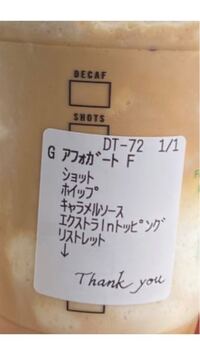 DECAF
SHOTS
DT-72 1/1
G アフォガート F
ショット
ホイップ
キャラメルソース
エクストラInトッピング
リストレット
↓
Thank you